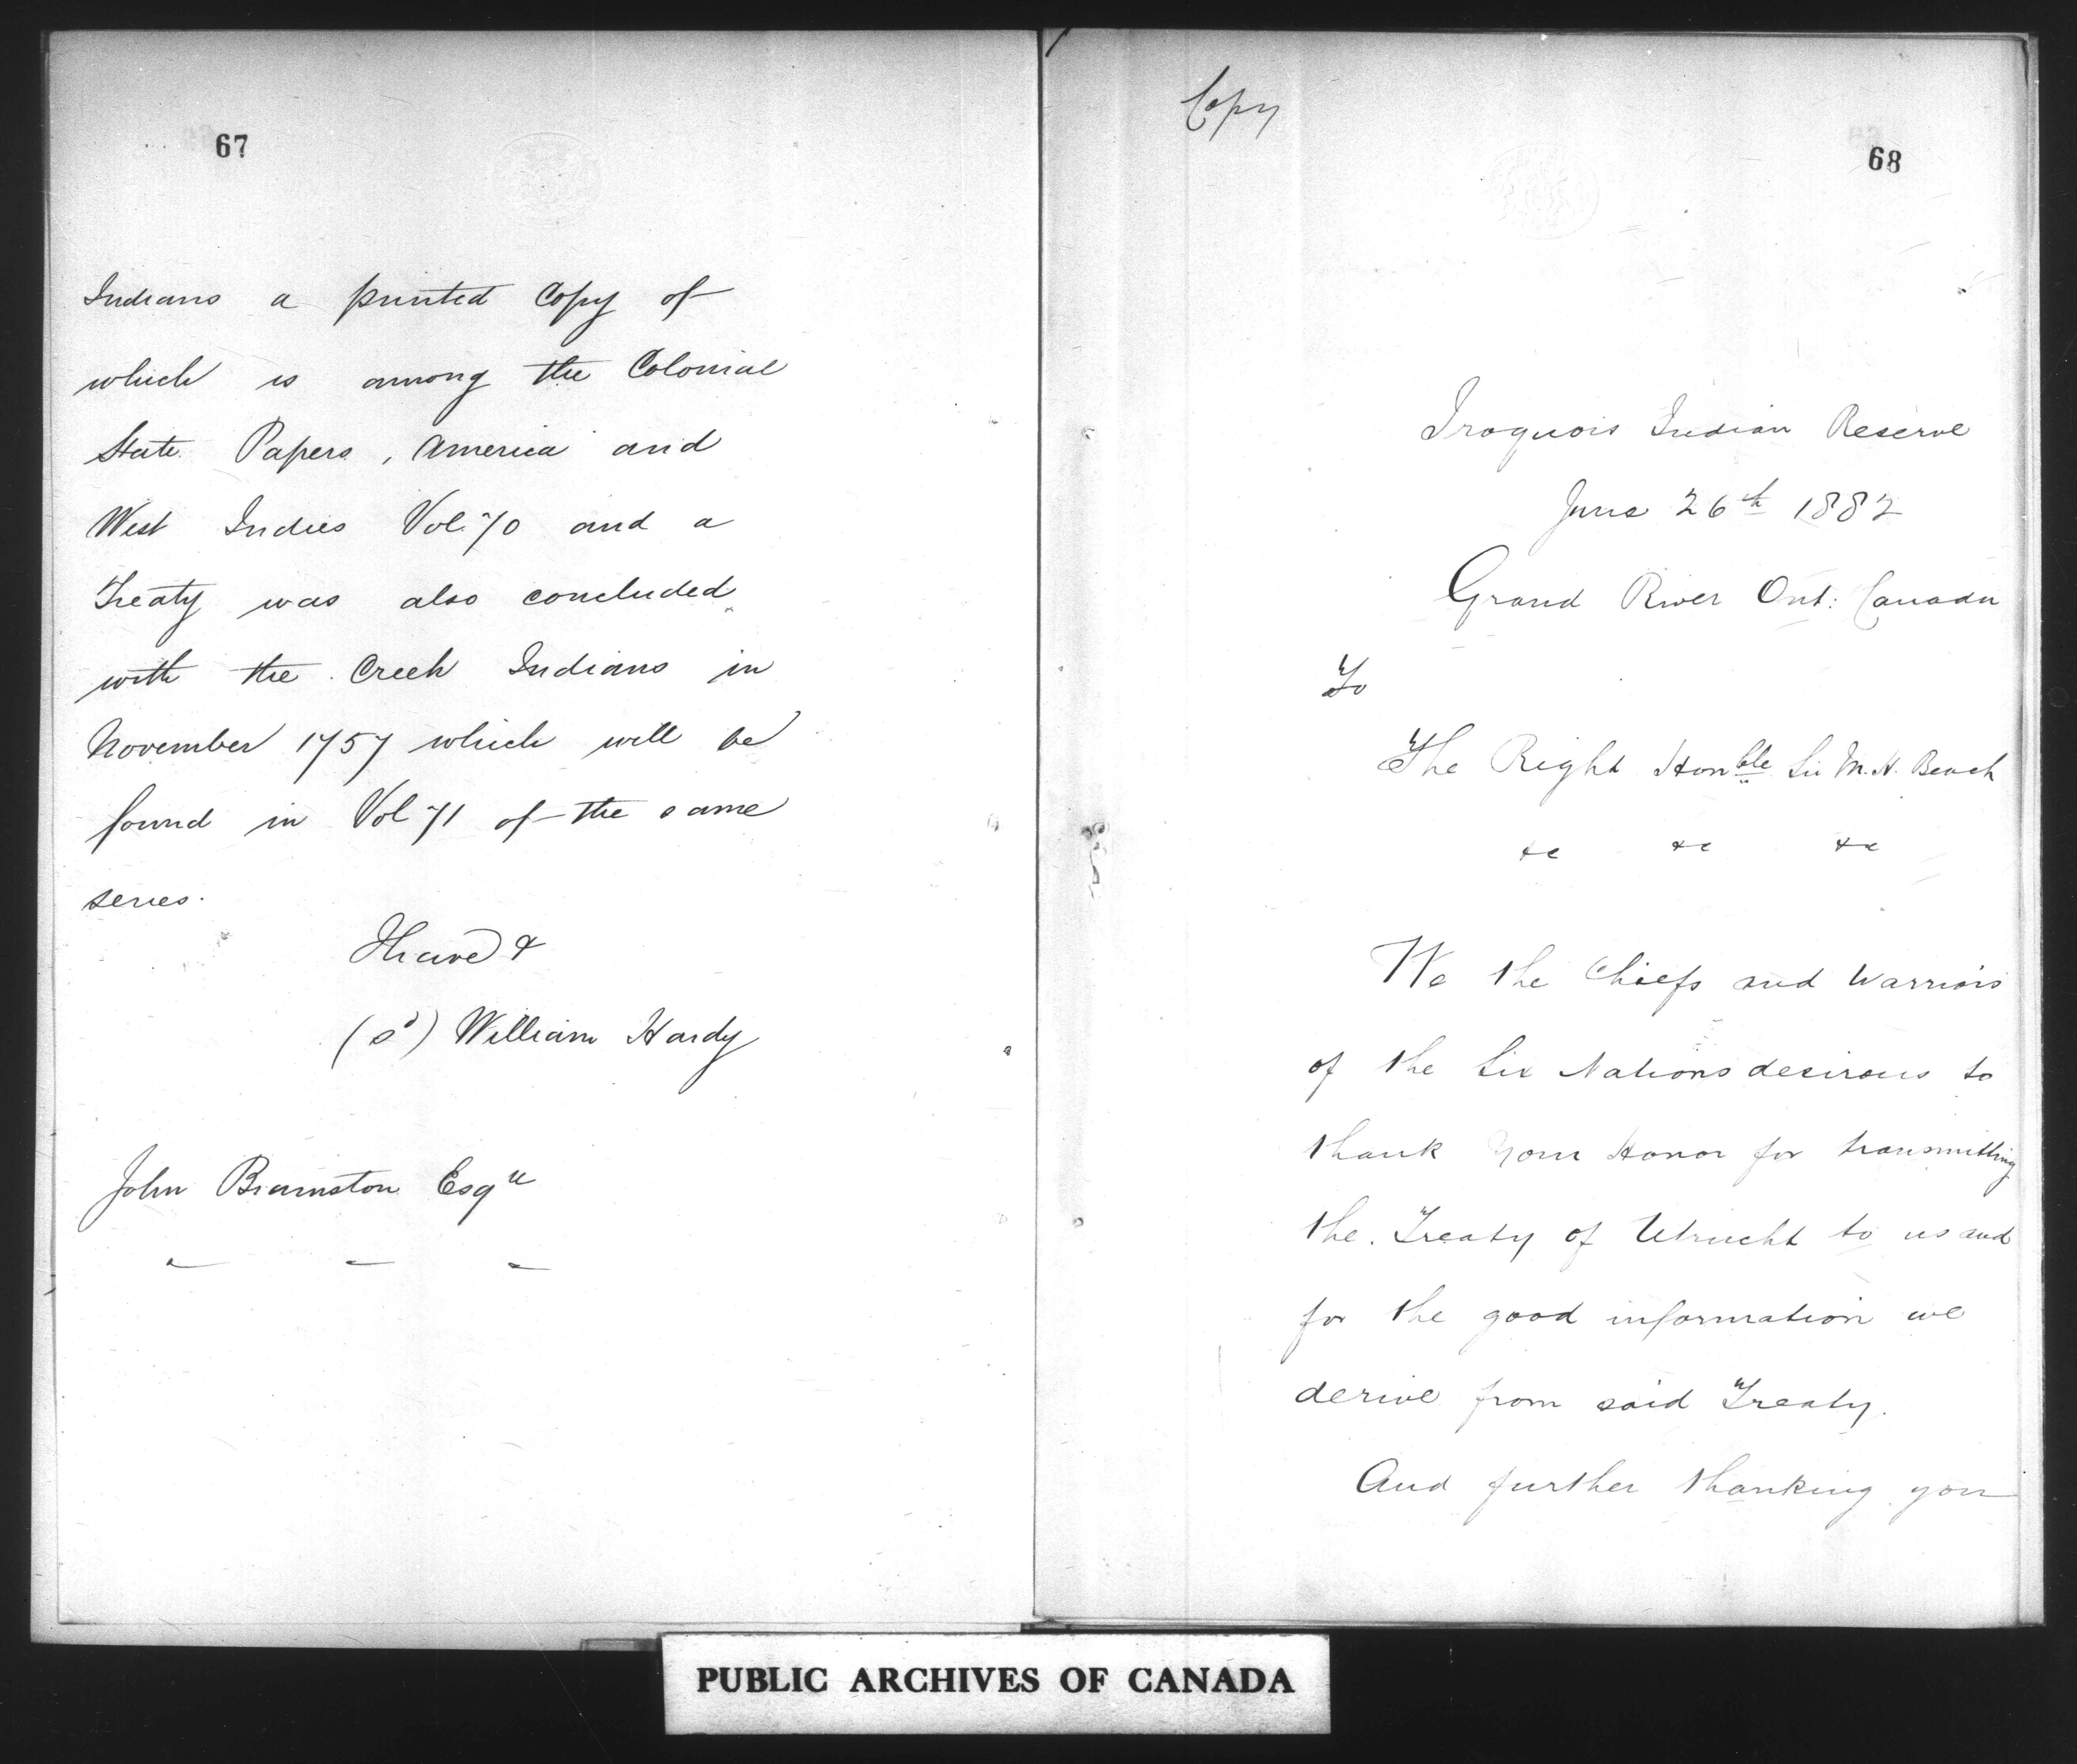 67
Indians a printed Copy of
which is among the Colonial
State Papers, America and
West Indies Vol. 70 and a
Treaty was also concluded
with the Creek Indians in
November 1757 which will be
found in Vol 71 of the same
series.
I have &
(sd) William Hardy
John Bramston Esqre
Copy
68
Iroquois Indian Reserve
June 26th 1882
Grand River Ont: Canada
To
The Right Honble Sir M. H. Beach
&c &c &c
We the Chiefs and Warriors
of the Six Nations desirous to
thank Your Honor for transmitting
the Treaty of Utrucht to us and
for the good information we
derive from said Treaty.
And further thanking you
PUBLIC ARCHIVES OF CANADA